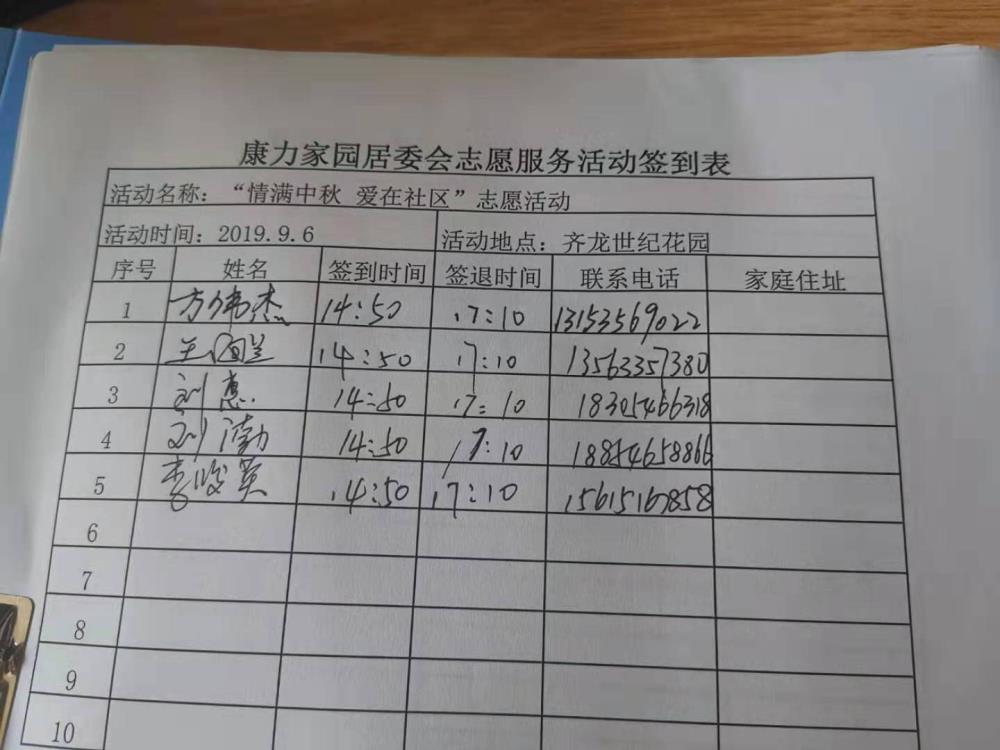 康力家园居委会志愿服务活动签到表
活动名称：“情满中秋 爱在社区”志愿活动
活动时间：2019.9.6 活动地点：齐龙世纪花园
序号 姓名 签到时间 签退时间 联系电话 家庭住址
1 方伟杰 14:50 17:10 13153569022
2 14:50 17:10 13563357380
3 刘惠 14:50 17:10 18305466318
4 刘渤 14:50 17:10 18854658866
5 李峻英 14:50 17:10
6
7
8
9
10